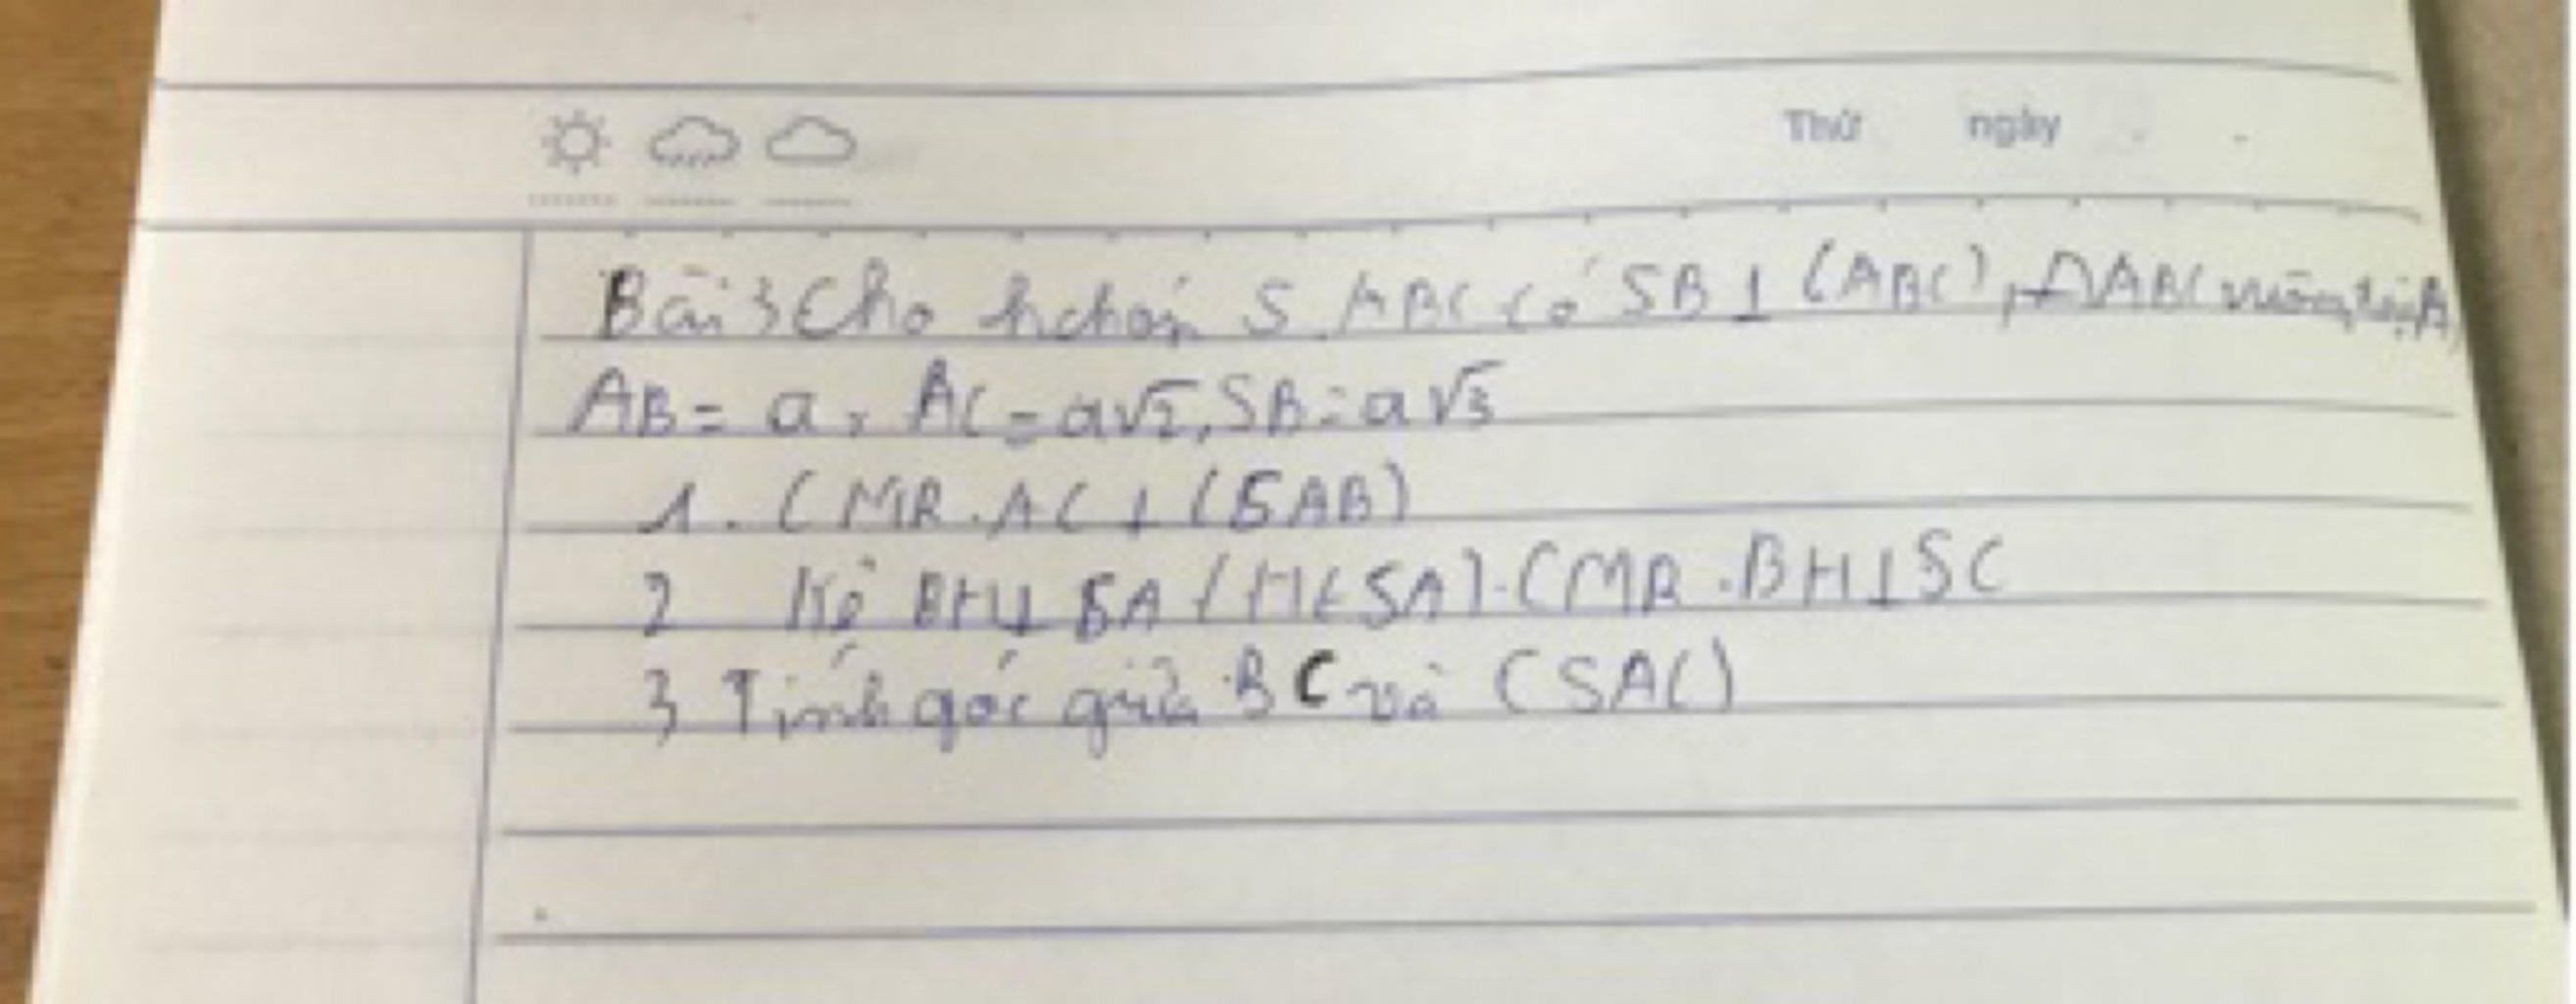 Thứ ngày
Bài 3 Cho hchóp S.ABC có SB ⊥ (ABC), ΔABC vuông tại A,
AB = a, AC = a√2, SB = a√3
1. CMR. AC ⊥ (SAB)
2 Kẻ BH ⊥ SA (H ∈ SA). CMR. BH ⊥ SC
3 Tính góc giữa BC và (SAC)